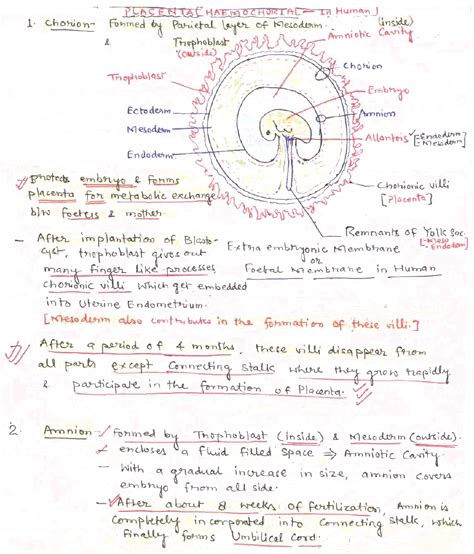 PLACENTA [HAEMOCHORIAL — in Human]
1. Chorion - Formed by Parietal layer of Mesoderm (inside)
& Trophoblast
(outside)
Amniotic Cavity
Chorion
Trophoblast
Embryo
Ectoderm
Amnion
Mesoderm
Allantois [Endoderm
Mesoderm]
Endoderm
Chorionic villi
[Placenta]
Protects embryo & forms
placenta for metabolic exchange
b/w foetus & mother.
Remnants of Yolk Sac.
[Meso
Endoderm]
- After implantation of Blasto-
cyst, trophoblast gives out
many finger like processes,
chorionic villi which get embedded
into Uterine Endometrium.
Extra embryonic Membrane
or
Foetal Membrane in Human
[Mesoderm also contributes in the formation of these villi.]
After a period of 4 months, these villi disappear from
all parts except Connecting Stalk where they grow rapidly
& participate in the formation of Placenta.
2. Amnion - formed by Trophoblast (inside) & Mesoderm (outside).
encloses a fluid filled space ⇒ Amniotic Cavity.
- With a gradual increase in size, amnion covers
embryo from all side.
- After about 8 weeks of fertilization, Amnion is
completely incorporated into Connecting Stalk, which
finally forms Umbilical Cord.